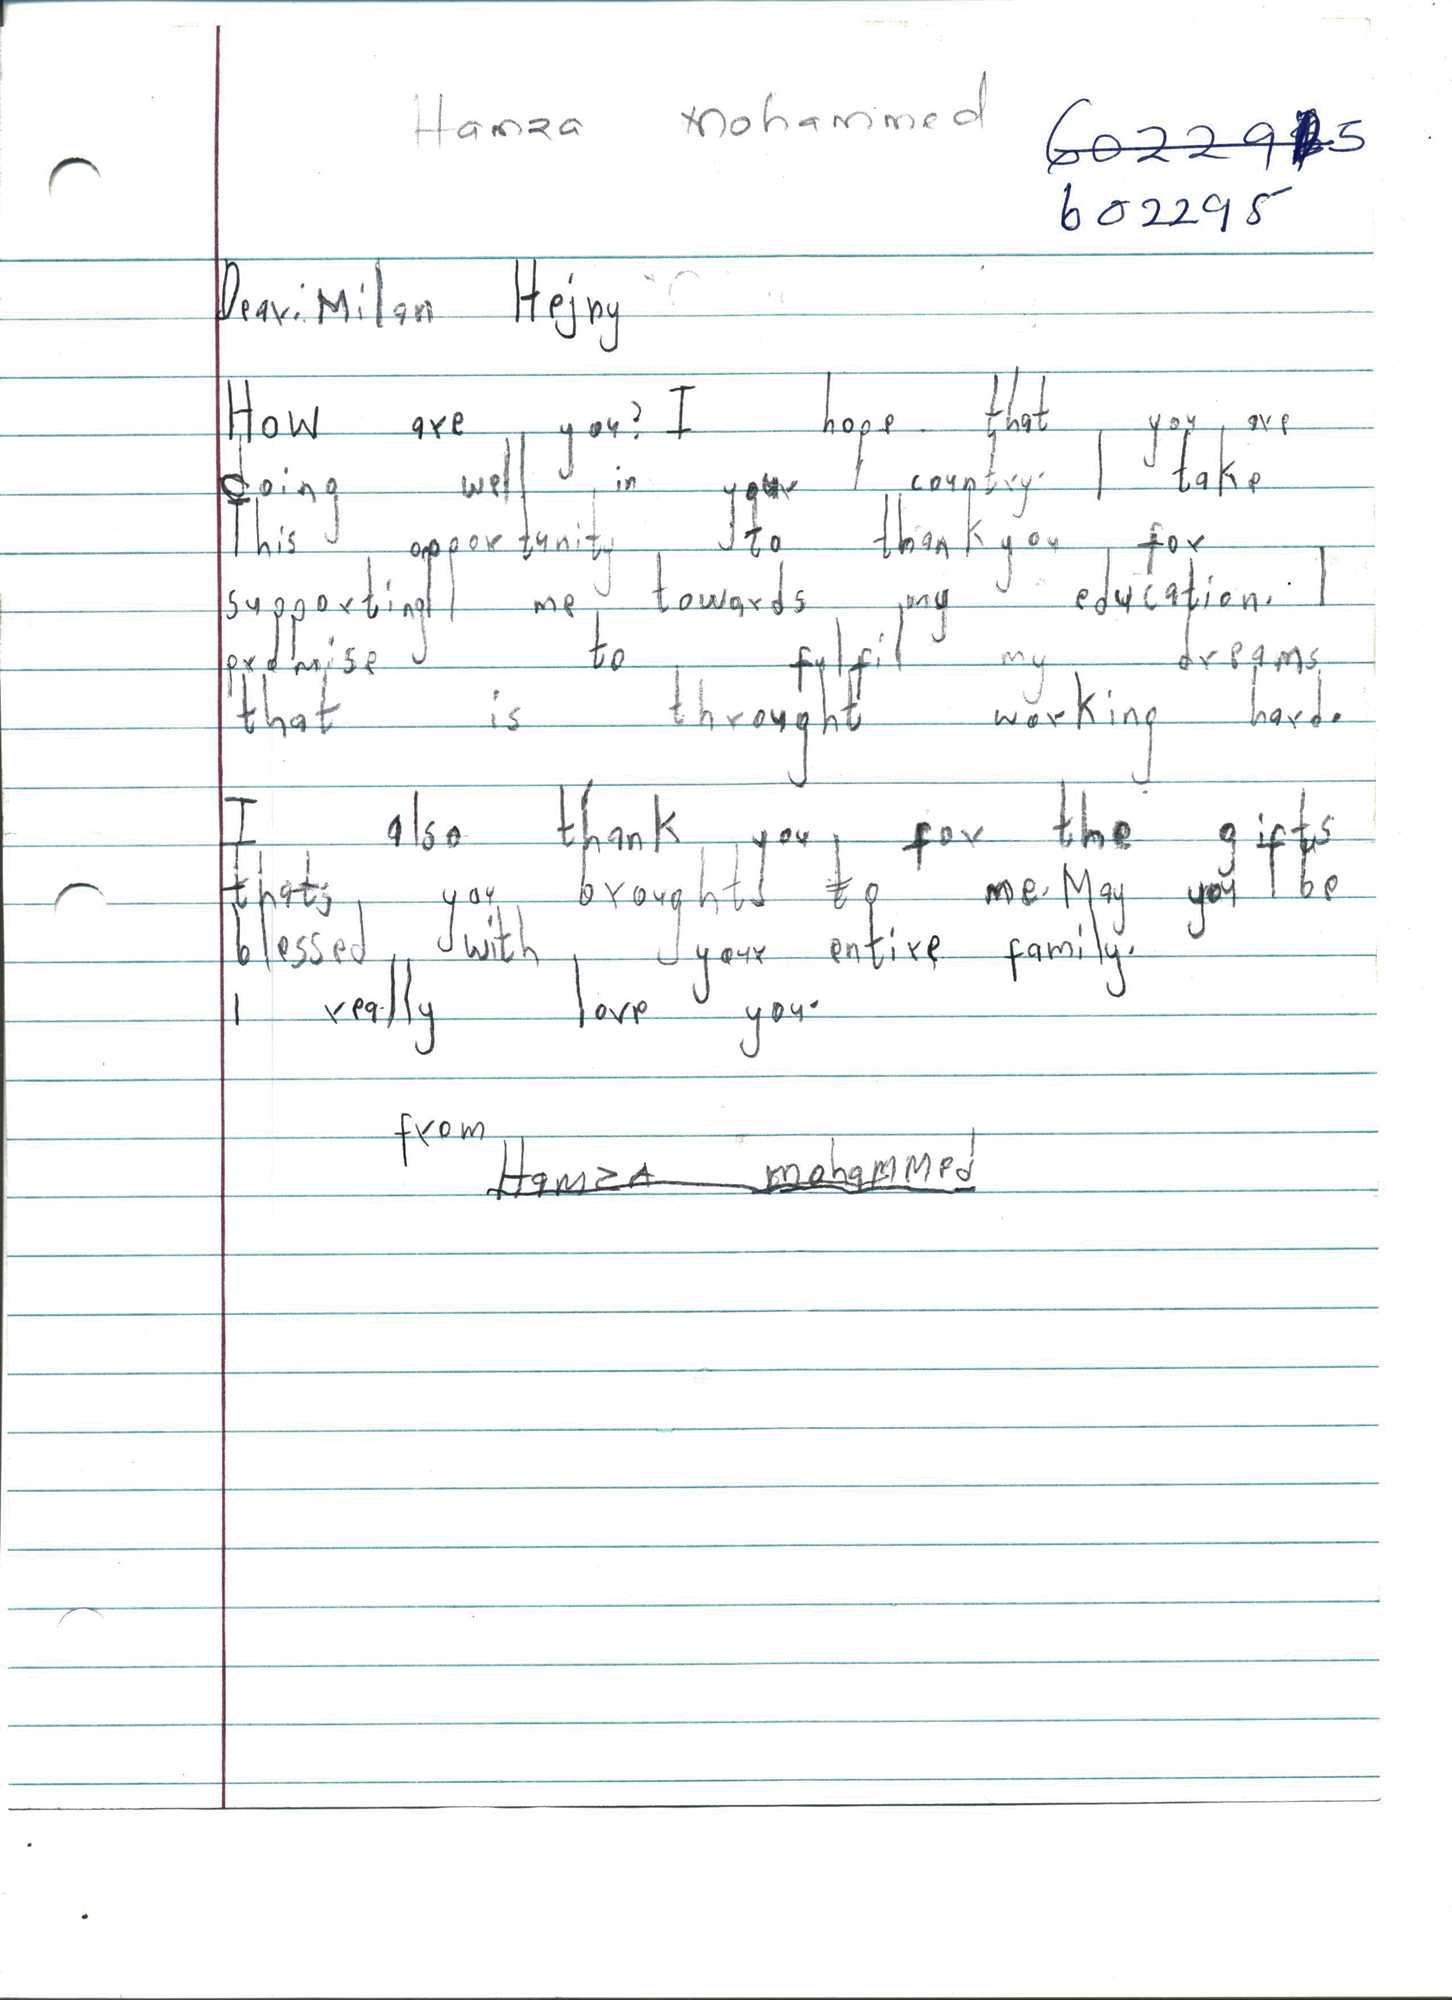 Hamza mohammed
602295
602295
Dear. Milan Hejny
How are you? I hope that you are
doing well in your country. I take
This opportunity to thank you for
supporting me towards my education. I
promise to fulfil my dreams
that is throught working hard.
I also thank you for the gifts
thats you broughts to me. May you be
blessed with your entire family.
I really love you.
from
HamzA mohamMed